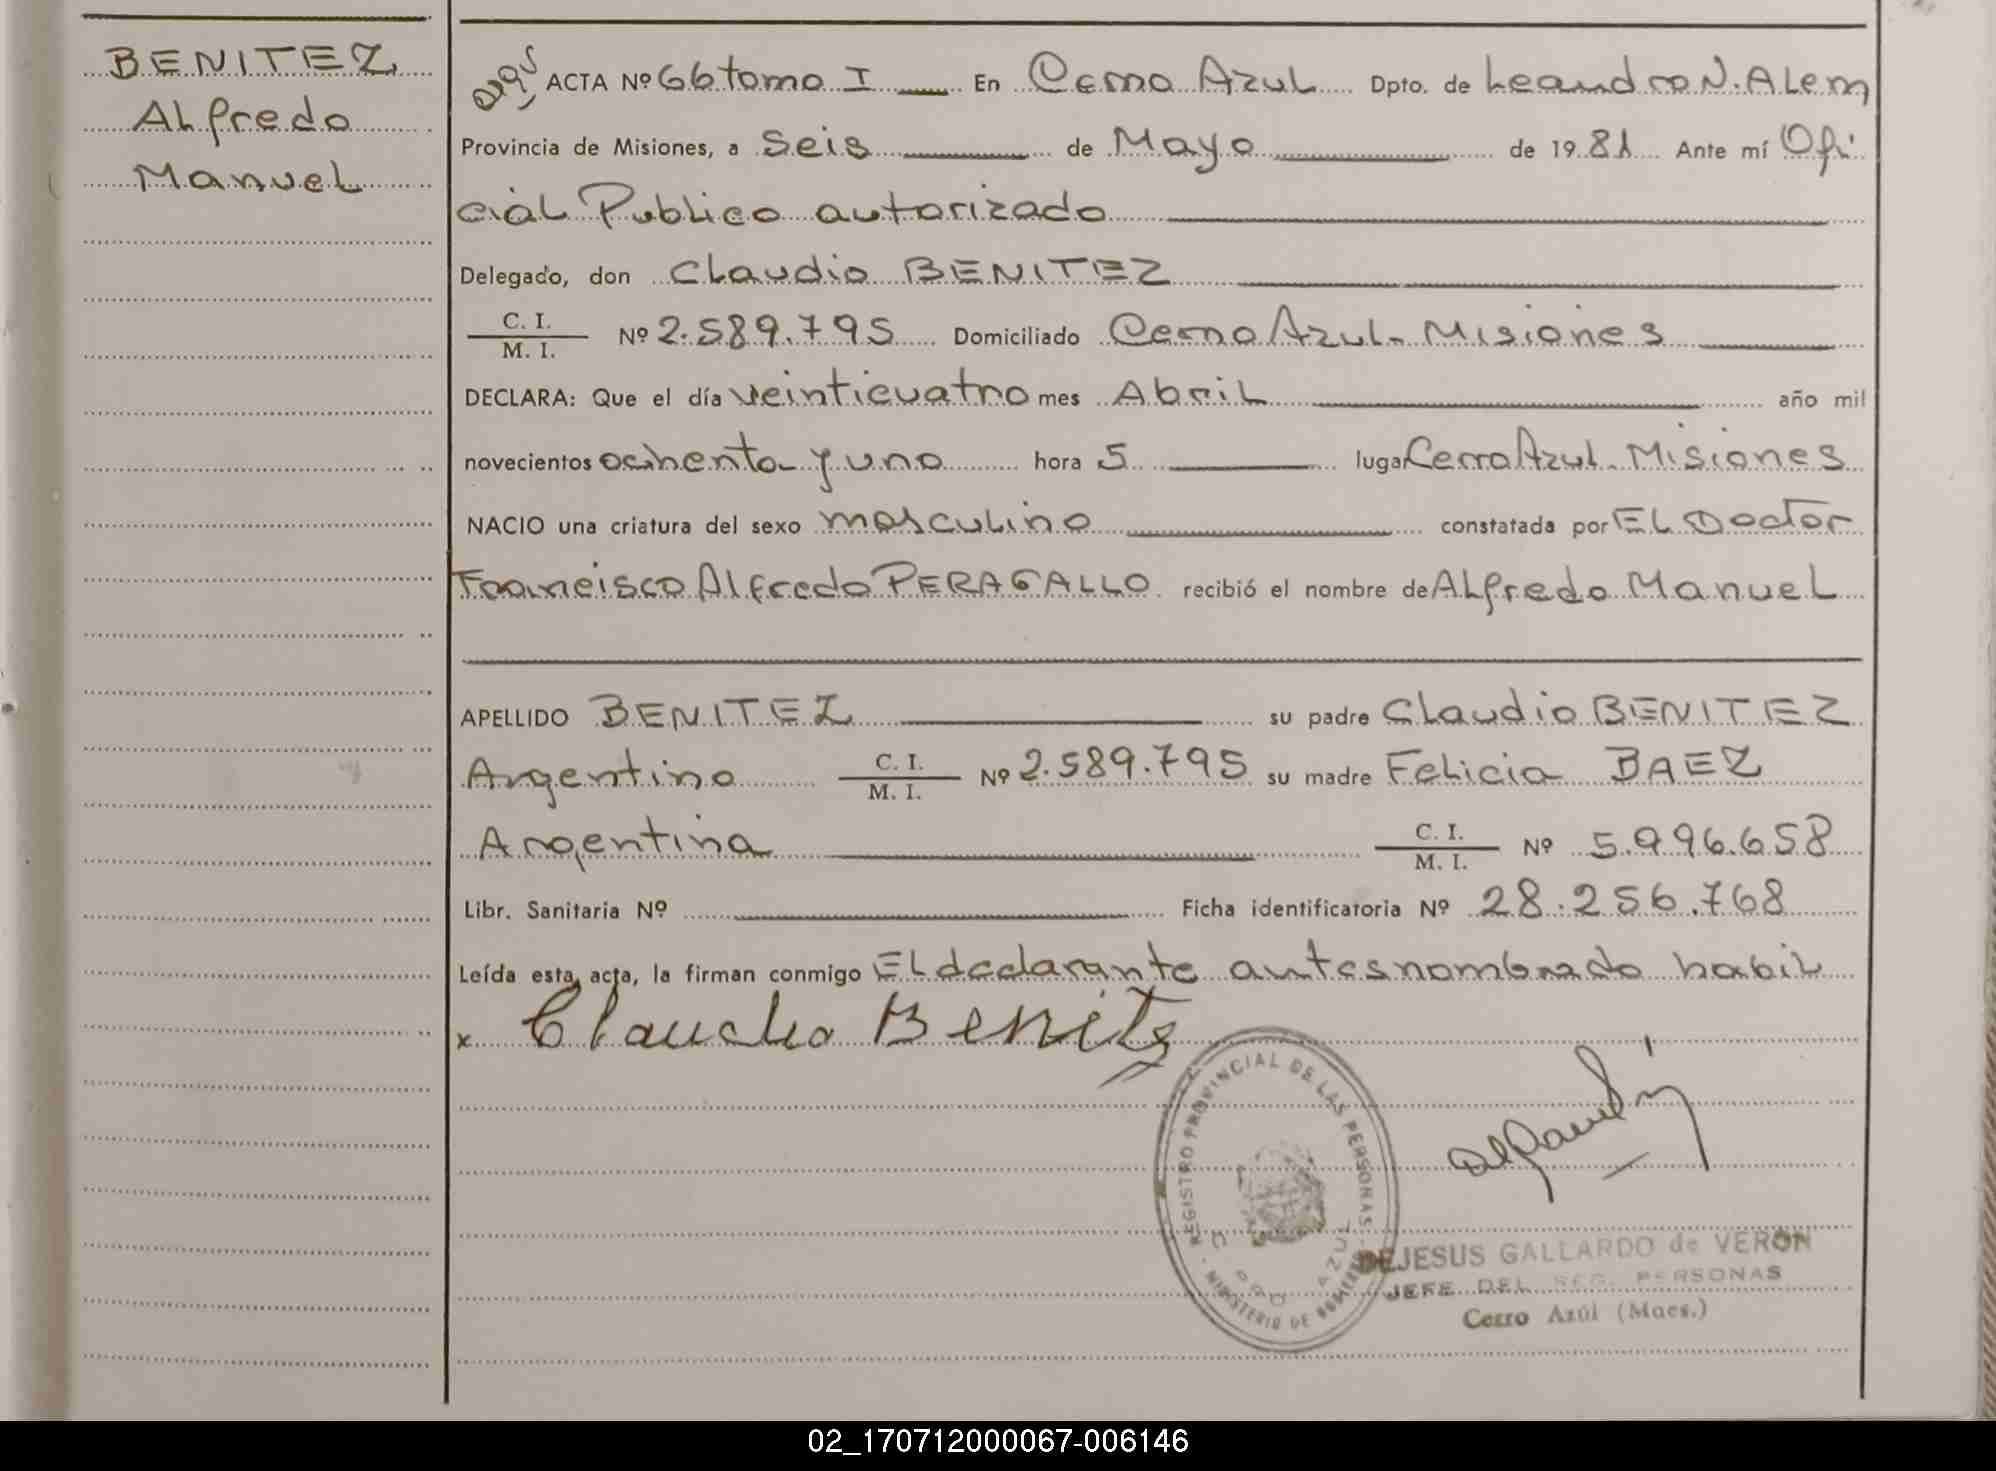 BENITEZ
Alfredo
Manuel
ACTA Nº 66 tomo I En Cerro Azul Dpto. de Leandro N. Alem
Provincia de Misiones, a Seis de Mayo de 1981 Ante mí Ofi
cial Publico autorizado
Delegado, don Claudio BENITEZ
C. I.
M. I. Nº 2.589.795 Domiciliado Cerro Azul - Misiones
DECLARA: Que el día veinticuatro mes Abril año mil
novecientos ochenta y uno hora 5 lugar Cerro Azul - Misiones
NACIO una criatura del sexo masculino constatada por EL Doctor
Francisco Alfredo PERAGALLO recibió el nombre de Alfredo Manuel
APELLIDO BENITEZ su padre Claudio BENITEZ
Argentino C. I.
M. I. Nº 2.589.795 su madre Felicia BAEZ
Argentina C. I.
M. I. Nº 5.996.658
Libr. Sanitaria Nº Ficha identificatoria Nº 28.256.768
Leída esta acta, la firman conmigo El declarante antes nombrado habil
x Claudio Benitez
REGISTRO PROVINCIAL DE LAS PERSONAS
- MINISTERIO DE GOBIERNO
CERRO AZUL
DEJESUS GALLARDO de VERON
JEFE DEL REG. PERSONAS
Cerro Azúl (Mnes.)
02_170712000067-006146